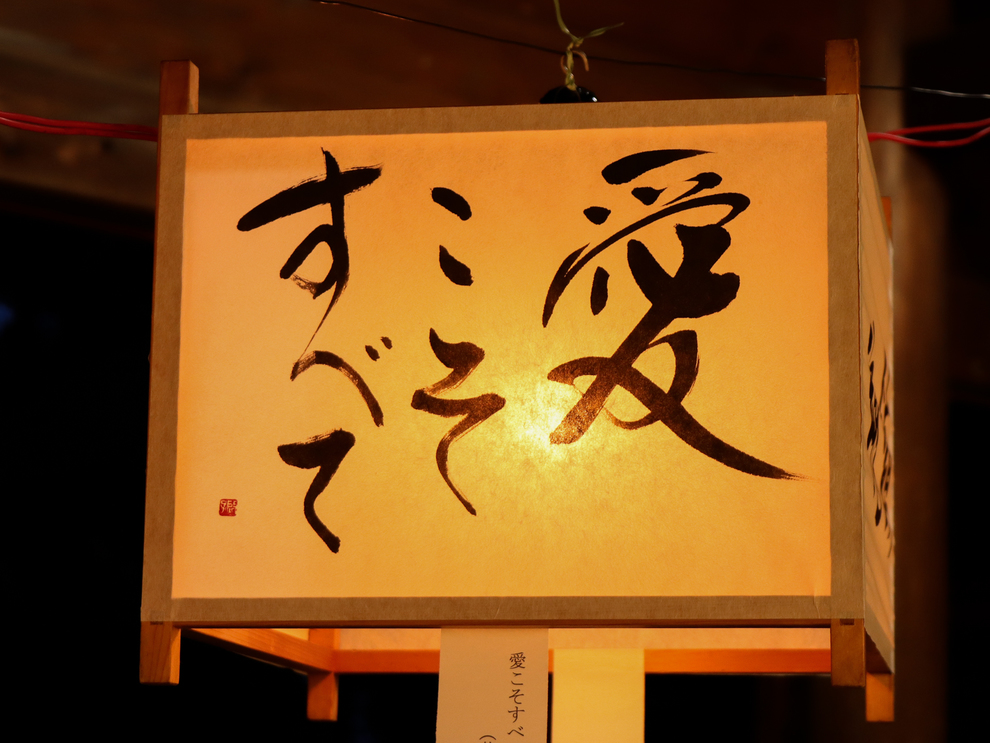 愛
こそ
すべて
愛こそすべ